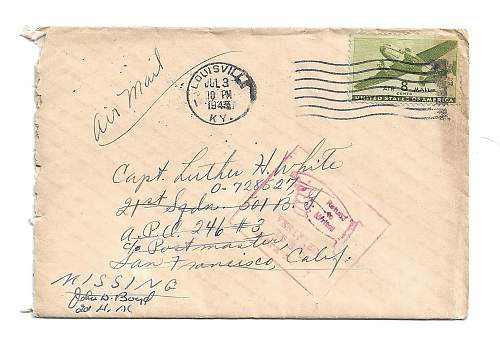 Air Mail
LOUISVILLE
JUL 3
10 PM
1945
KY.
8
AIR MAIL
CENTS
UNITED STATES OF AMERICA
Capt. Luther H. White
O-728527
21st Sqdn. 501 B. G.
A.P.O. 246 #3
c/o Postmaster,
San Francisco, Calif.
Return
to
MISSING
John D. Boyd